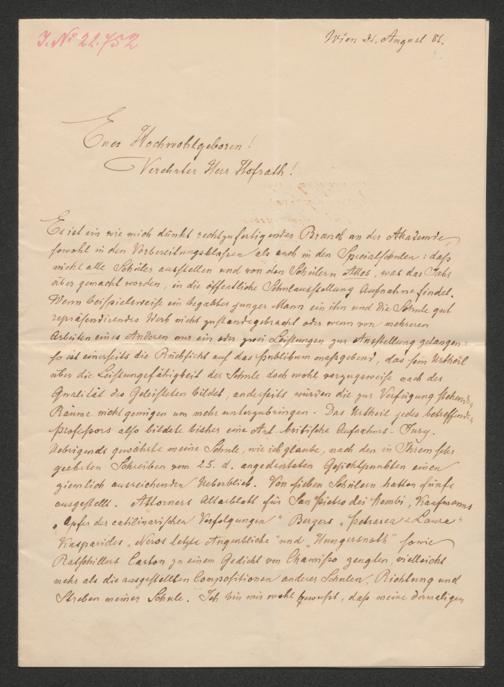 J. No 22.752
Wien 31. August 86.
Euer Hochwohlgeboren!
Verehrter Herr Hofrath!
Es ist ein wie mich dünkt rechtzufertigender Brauch an der Akademie,
sowohl in den Vorbereitungsklassen als auch in den Specialschulen: daß
nicht alle Schüler ausstellen und von den Schülern Alles, was das Jahr
über gemacht worden, in die öffentliche Schulausstellung Aufnahme findet.
Wenn beispielsweise ein begabter junger Mann ein ihn und die Schule gut
repräsendirendes Werk nicht zustandegebracht oder wenn von mehreren
Arbeiten eines Anderen nur ein oder zwei Leistungen zur Ausstellung gelangen:
so ist einerseits die Rücksicht auf das Publikum maßgebend, das sein Urtheil
über die Leistungsfähigkeit der Schule doch wohl vorzugsweise nach der
Qualität des Geleisteten bildet, anderseits würden die zur Verfügung stehenden
Räume nicht genügen um mehr unterzubringen. Das Urtheil jedes betreffenden
Professors also bildete bisher eine Art kritische Aufnahms-Jury.
Uebrigends gewährte meine Schule, wie ich glaube, nach den in Ihrem sehr
geehrten Schreiben vom 25. d. angedeuteten Gesichtspunkten einen
ziemlich ausreichenden Ueberblick. Von sieben Schülern hatten fünfe
ausgestellt. Altarblatt für San Pietro dei Nembi, Kaufmanns
"Opfer der catilinarischen Verfolgungen" Bergers "Laura"
"Neros letzte Augenblicke" und "Hungersnoth" sowie
Carton zu einem Gedicht von Chamisso zeugten vielleicht
mehr als die ausgestellten Compositionen anderer Schulen, Richtung und
Streben meiner Schule. Ich bin mir wohl bewußt, daß meine dermaligen